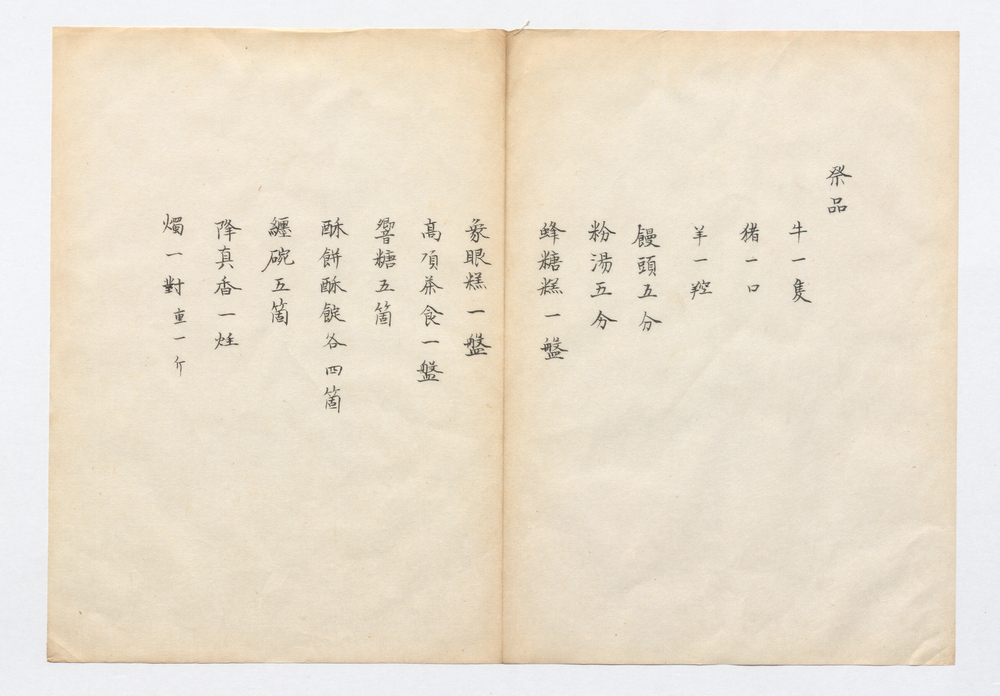 祭品
牛一隻
猪一口
羊一羫
饅頭五分
粉湯五分
蜂糖糕一盤
象眼糕一盤
高頂茶食一盤
響糖五箇
酥餅酥錠各四箇
纏碗五箇
降真香一炷
燭一對重一斤